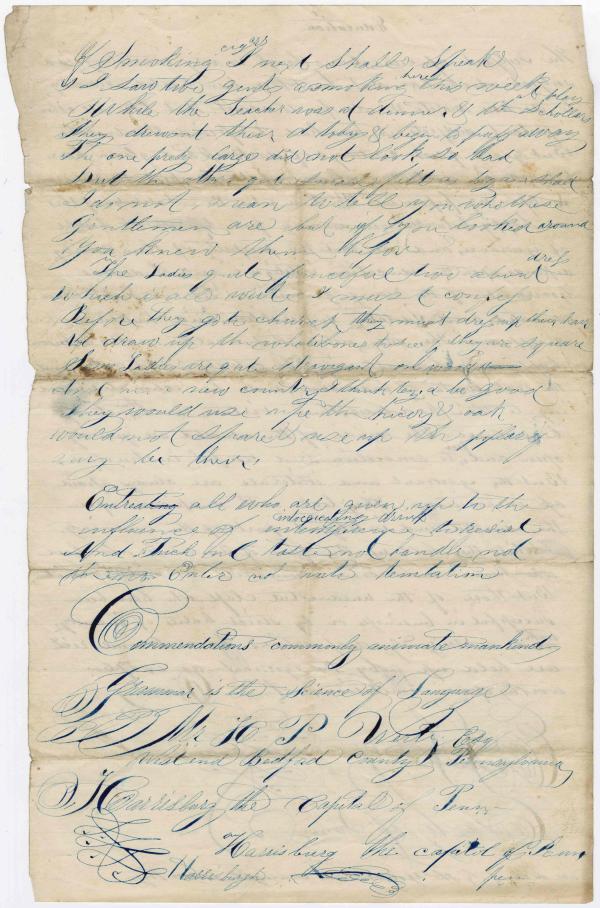 Of Smoking cigars I next shall speak
I saw two gents a smoking here this week
While the Teacher was at dinner & the Scholars at play
They drew out their & began to puff away
The one pretty large did not look so bad
But the other
I do not mean to tell you who these
Gentlemen are but if you looked around
You knew them before
The Ladies quite fanciful two about dress
Which is all vanity I must confess
Before they go to church they must dress up their hair
& draw up the whalebones till they are square
Some Ladies are quite extravagant on wood
And in a new country I think they'd be good
They would use up the hickory & oak
would not spare & use up the poplar if
any be there.
Entreating all who are given up to the
influence of intoxicating drink to resist
And Touch not taste not handle not
Enter not into temtation
Commendations commonly animate mankind
Grammar is the Science of Language
Mr H P Esq
Bedford County Pennsylvania
Harrisburg the Capital of Penn
Harrisburg the capitol of Penn
Harrisburgh penn